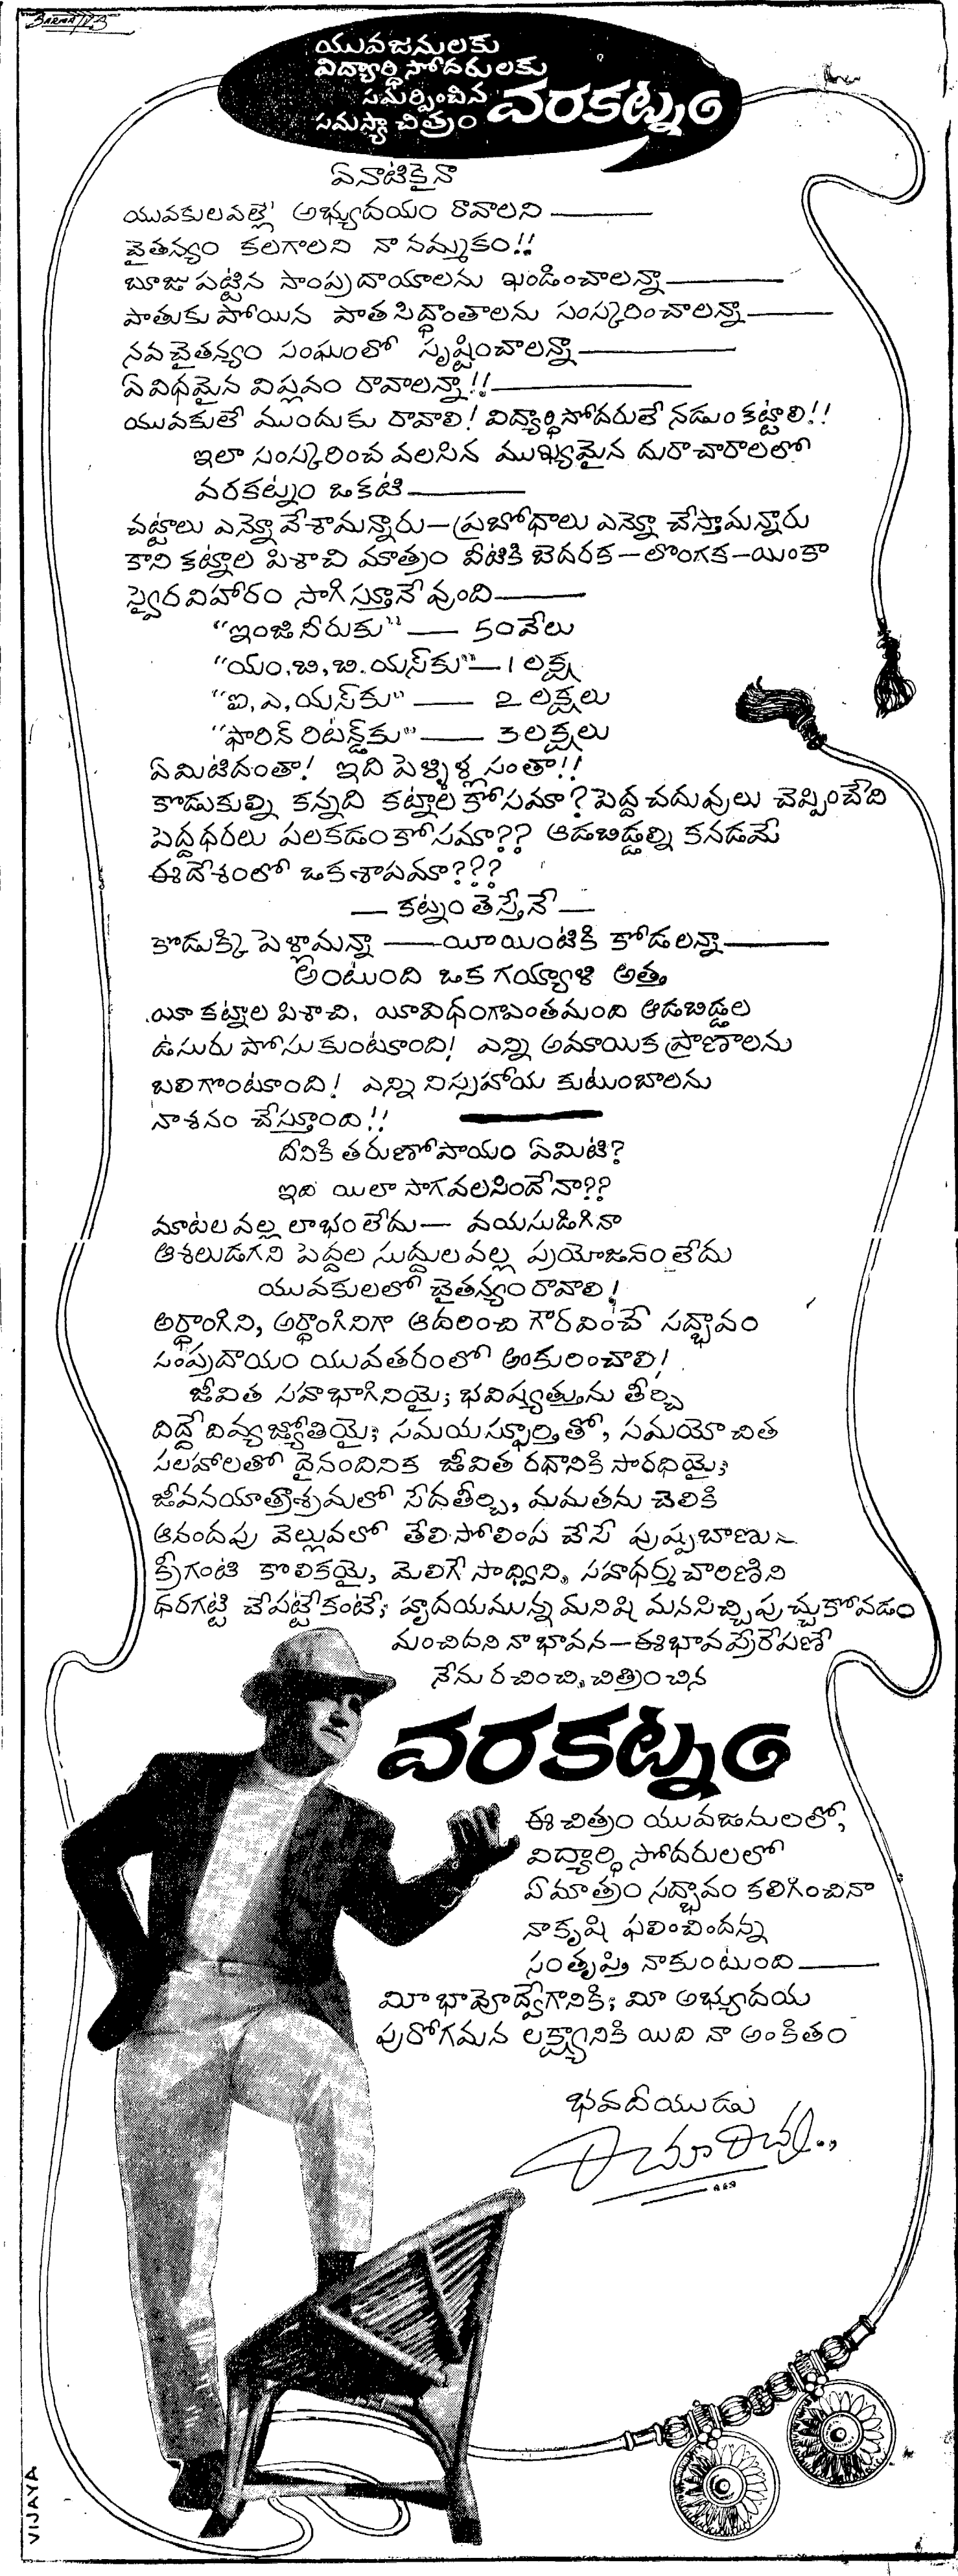 యువజనులకు
విద్యార్థి సోదరులకు
సమర్పించిన
సమస్యా చిత్రం వరకట్నం
ఏనాటికైనా
యువకులవల్లే అభ్యుదయం రావాలని
చైతన్యం కలగాలని నా నమ్మకం!!
బూజు పట్టిన సాంప్రదాయాలను ఖండించాలన్నా
పాతుకు పోయిన పాత సిద్ధాంతాలను సంస్కరించాలన్నా
నవ చైతన్యం సంఘంలో సృష్టించాలన్నా
ఏ విధమైన విప్లవం రావాలన్నా!!
యువకులే ముందుకు రావాలి! విద్యార్థి సోదరులే నడుం కట్టాలి!!
ఇలా సంస్కరించ వలసిన ముఖ్యమైన దురాచారాలలో
వరకట్నం ఒకటి
చట్టాలు ఎన్నో వేశామన్నారు—ప్రబోధాలు ఎన్నో చేస్తామన్నారు
కాని కట్నాల పిశాచి మాత్రం వీటికి బెదరక—లొంగక—యింకా
స్వైర విహారం సాగిస్తూనే వుంది
"ఇంజినీరుకు" — 50 వేలు
"యం.బి.బి.యస్‌కు" — 1 లక్ష
"ఐ.ఎ.యస్‌కు" — 2 లక్షలు
"ఫారిన్ రిటన్డ్‌కు" — 3 లక్షలు
ఏమిటిదంతా! ఇది పెళ్ళిళ్ల సంతా!!
కొడుకుల్ని కన్నది కట్నాల కోసమా? పెద్ద చదువులు చెప్పించేది
పెద్ద ధరలు పలకడం కోసమా?? ఆడబిడ్డల్ని కనడమే
ఈ దేశంలో ఒక శాపమా???
— కట్నం తెస్తేనే —
కొడుక్కి పెళ్లామన్నా — యీ యింటికి కోడలన్నా
అంటుంది ఒక గయ్యాళి అత్త
యీ కట్నాల పిశాచి, యీవిధంగా ఎంతమంది ఆడబిడ్డల
ఉసురు పోసుకుంటూంది! ఎన్ని అమాయిక ప్రాణాలను
బలిగొంటూంది! ఎన్ని నిస్సహాయ కుటుంబాలను
నాశనం చేస్తూంది!!
దీనికి తరుణోపాయం ఏమిటి?
ఇది యిలా సాగవలసిందేనా??
మాటల వల్ల లాభం లేదు— వయసుడిగినా
ఆశలుడగని పెద్దల సుద్దుల వల్ల ప్రయోజనం లేదు
యువకులలో చైతన్యం రావాలి!
అర్ధాంగిని, అర్ధాంగినిగా ఆదరించి గౌరవించే సద్భావం
సంప్రదాయం యువతరంలో అంకురించాలి!
జీవిత సహభాగినియై; భవిష్యత్తును తీర్చి
దిద్దే దివ్య జ్యోతియై; సమయ స్ఫూర్తితో, సమయోచిత
సలహాలతో దైనందినిక జీవిత రథానికి సారధియై;
జీవనయాత్రాశ్రమలో సేదతీర్చి, మమతను చిలికి
ఆనందపు వెల్లువలో తేలి సోలింప చేసే పుష్పబాణు
క్రీగంటి కొలికయై, మెలిగే సాధ్విని, సహధర్మ చారిణిని
ధరగట్టి చేపట్టేకంటే; హృదయమున్న మనిషి మనసిచ్చి పుచ్చుకోవడం
మంచిదని నా భావన—ఈ భావ ప్రేరేపణే
నేను రచించి, చిత్రించిన
వరకట్నం
ఈ చిత్రం యువజనులలో,
విద్యార్థి సోదరులలో
ఏమాత్రం సద్భావం కలిగించినా
నా కృషి ఫలించిందన్న
సంతృప్తి నాకుంటుంది
మీ భావోద్వేగానికి; మీ అభ్యుదయ
పురోగమన లక్ష్యానికి యిది నా అంకితం
భవదీయుడు
VIJAYA